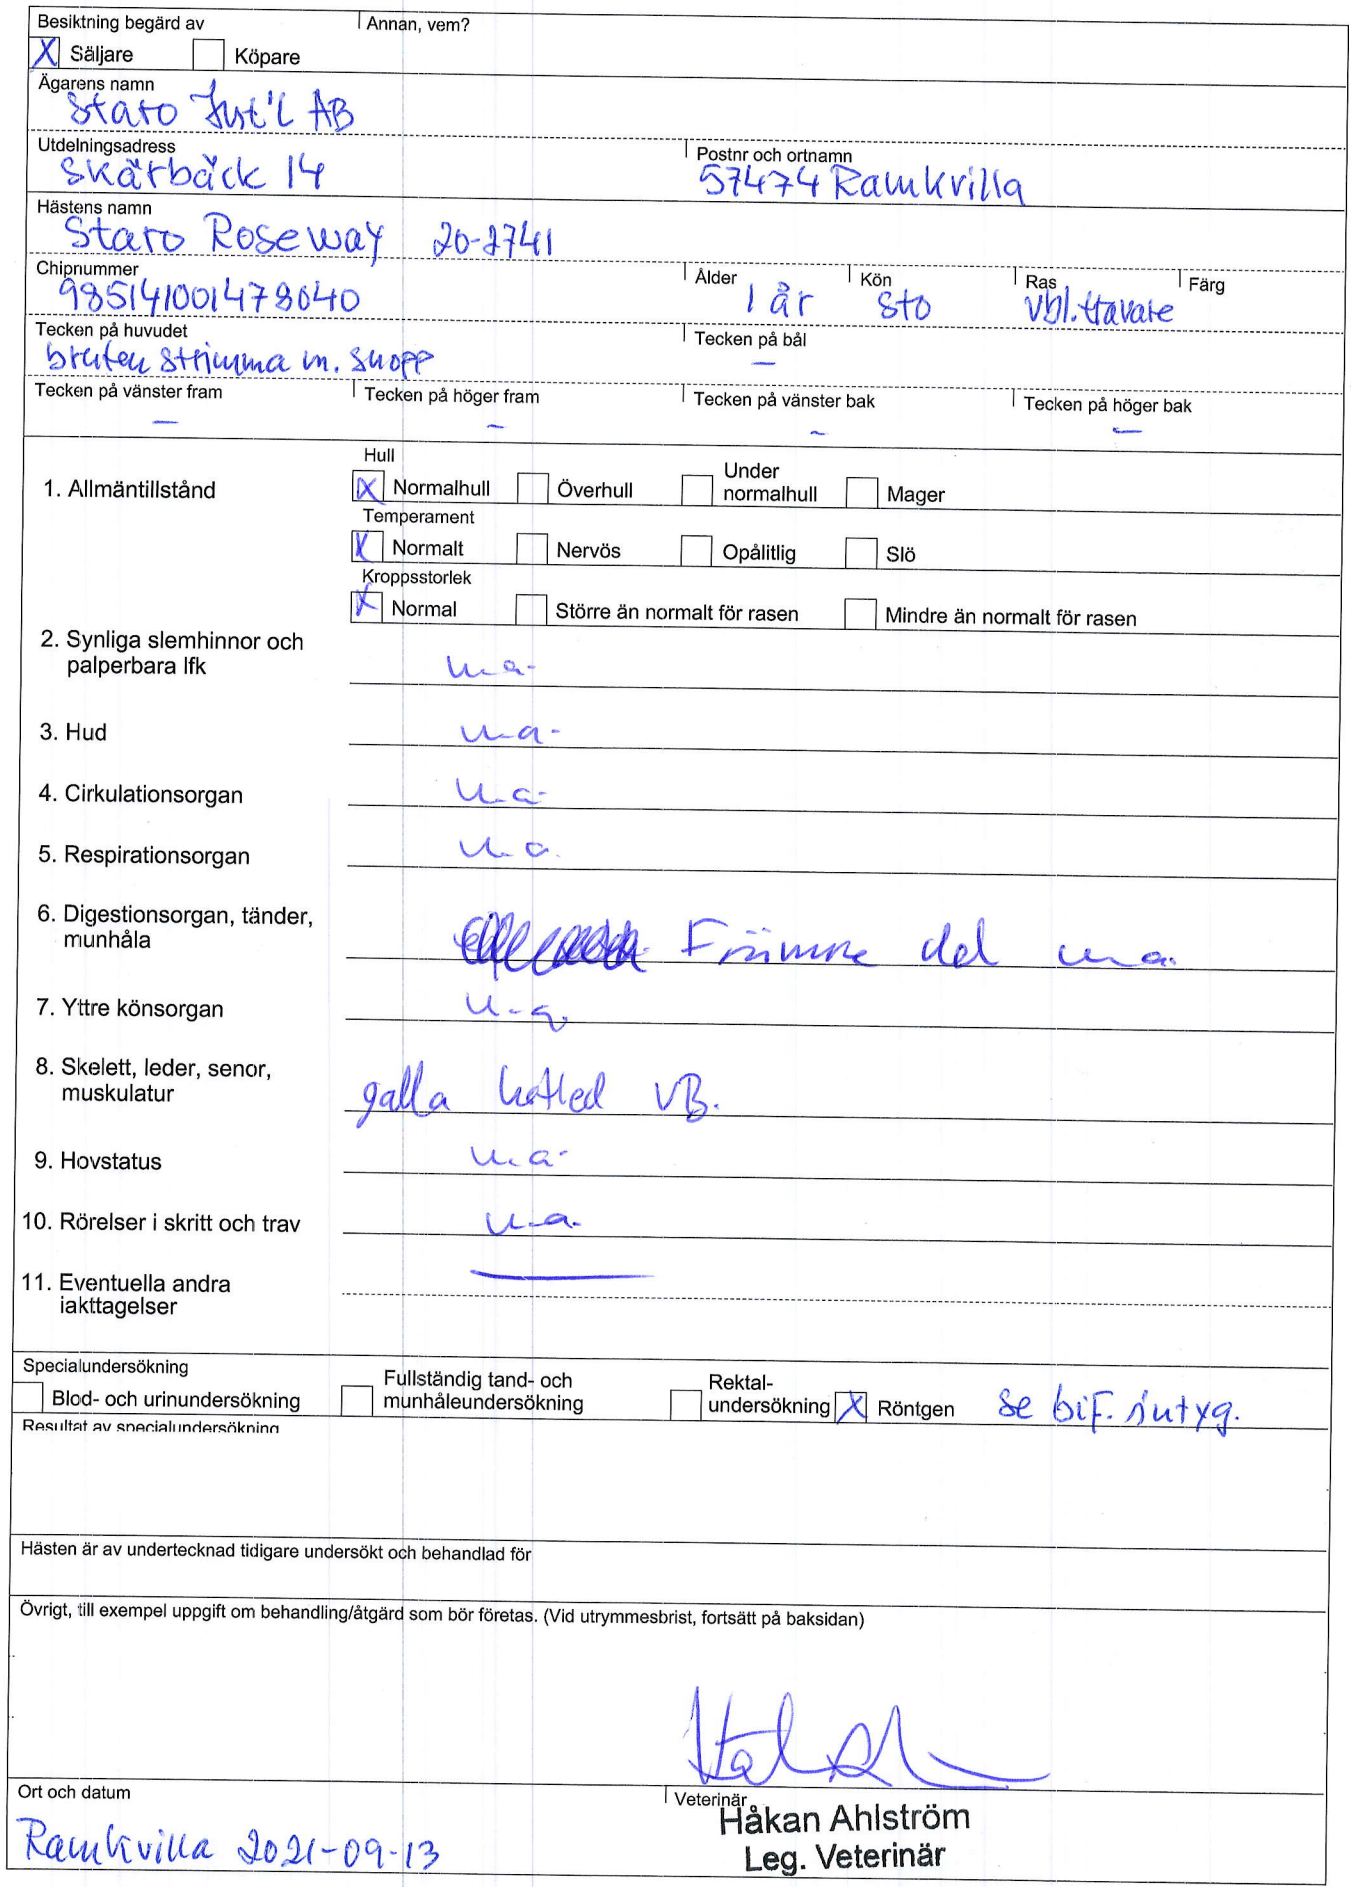 Besiktning begärd av Annan, vem?
X Säljare Köpare
Ägarens namn
Staro Int'l AB
Utdelningsadress Postnr och ortnamn
Skärbäck 14 57474 Ramkvilla
Hästens namn
Staro Roseway 20-2741
Chipnummer Ålder Kön Ras Färg
985141001478040 1 år Sto Vbl. travare
Tecken på huvudet Tecken på bål
bruten strimma m. snopp –
Tecken på vänster fram Tecken på höger fram Tecken på vänster bak Tecken på höger bak
– – – –
Hull
1. Allmäntillstånd X Normalhull Överhull Under normalhull Mager
Temperament
X Normalt Nervös Opålitlig Slö
Kroppsstorlek
X Normal Större än normalt för rasen Mindre än normalt för rasen
2. Synliga slemhinnor och
palperbara lfk u.a.
3. Hud u.a.
4. Cirkulationsorgan u.a.
5. Respirationsorgan u.a.
6. Digestionsorgan, tänder,
munhåla Främre del u.a.
7. Yttre könsorgan u.a.
8. Skelett, leder, senor,
muskulatur galla kotled VB.
9. Hovstatus u.a.
10. Rörelser i skritt och trav u.a.
11. Eventuella andra
iakttagelser
Specialundersökning
Blod- och urinundersökning Fullständig tand- och munhåleundersökning Rektal-undersökning X Röntgen se bif. intyg.
Resultat av specialundersökning
Hästen är av undertecknad tidigare undersökt och behandlad för
Övrigt, till exempel uppgift om behandling/åtgärd som bör företas. (Vid utrymmesbrist, fortsätt på baksidan)
Ort och datum Veterinär
Ramkvilla 2021-09-13 Håkan Ahlström
Leg. Veterinär